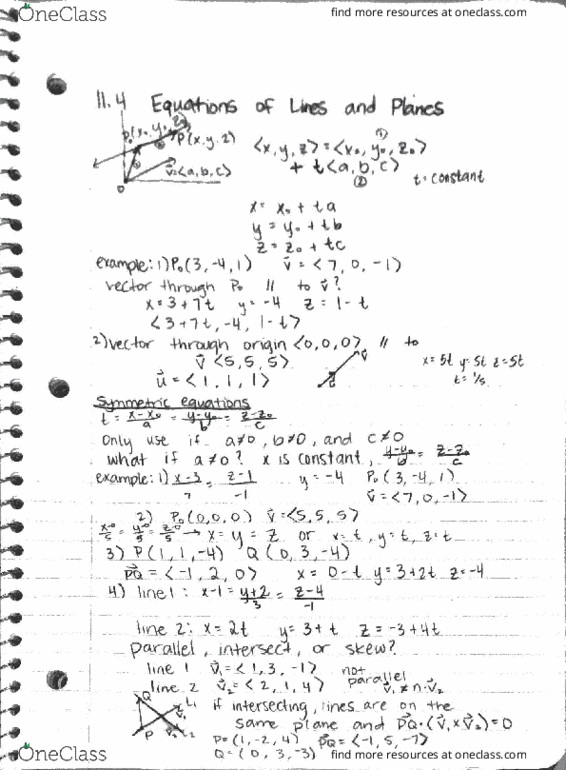 OneClass
find more resources at oneclass.com
11.4 Equations of Lines and Planes
P₀(x₀, y₀, z₀)
P(x, y, z)
v⃗=<a,b,c>
0
<x, y, z> = <x₀, y₀, z₀> ①
+ t<a, b, c> ②
t = constant
x = x₀ + ta
y = y₀ + tb
z = z₀ + tc
example: 1) P₀(3, -4, 1) v⃗ = <7, 0, -1>
vector through P₀ // to v⃗?
x = 3+7t y = -4 z = 1-t
<3+7t, -4, 1-t>
2) vector through origin <0,0,0> // to
v⃗ <5, 5, 5>
x=5t y=5t z=5t
u⃗ = <1, 1, 1>
t = 1/5
Symmetric equations
t = (x-x₀)/a = (y-y₀)/b = (z-z₀)/c
Only use if a≠0, b≠0, and c≠0
what if a≠0? x is constant, (y-y₀)/b = (z-z₀)/c
example: 1) (x-3)/7 = (z-1)/-1 y = -4 P₀(3, -4, 1)
v⃗ = <7, 0, -1>
2) P₀(0,0,0) v⃗=<5,5,5>
(x-0)/5 = (y-0)/5 = (z-0)/5 → x = y = z or x=t, y=t, z=t
3) P(1, 1, -4) Q(0, 3, -4)
PQ⃗ = <-1, 2, 0> x = 0-t y = 3+2t z = -4
4) line 1: x-1 = (y+2)/3 = (z-4)/-1
line 2: x = 2t y = 3+t z = -3+4t
parallel, intersect, or skew?
line 1 v⃗₁ = <1, 3, -1> not parallel
line 2 v⃗₂ = <2, 1, 4> v⃗₁ ≠ n·v⃗₂
Q L₁ v⃗₁ P v⃗₂ L₂
if intersecting, lines are on the
same plane and PQ⃗·(v⃗₁×v⃗₂)=0
P=(1,-2,4) PQ⃗ = <-1, 5, -7>
Q=(0, 3, -3)
OneClass
find more resources at oneclass.com